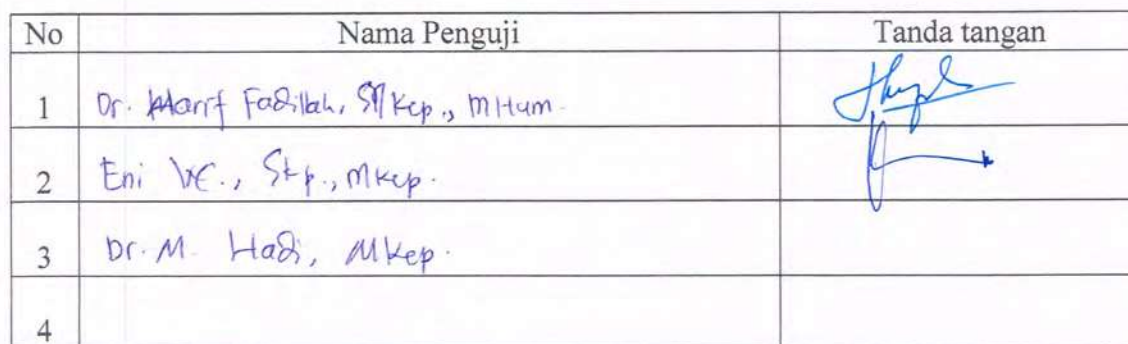 No Nama Penguji Tanda tangan
1 Dr. Arif Fadillah, Kep., MHum.
2 Eni ., Skp., Mkep.
3 Dr. M. Hadi, Mkep.
4